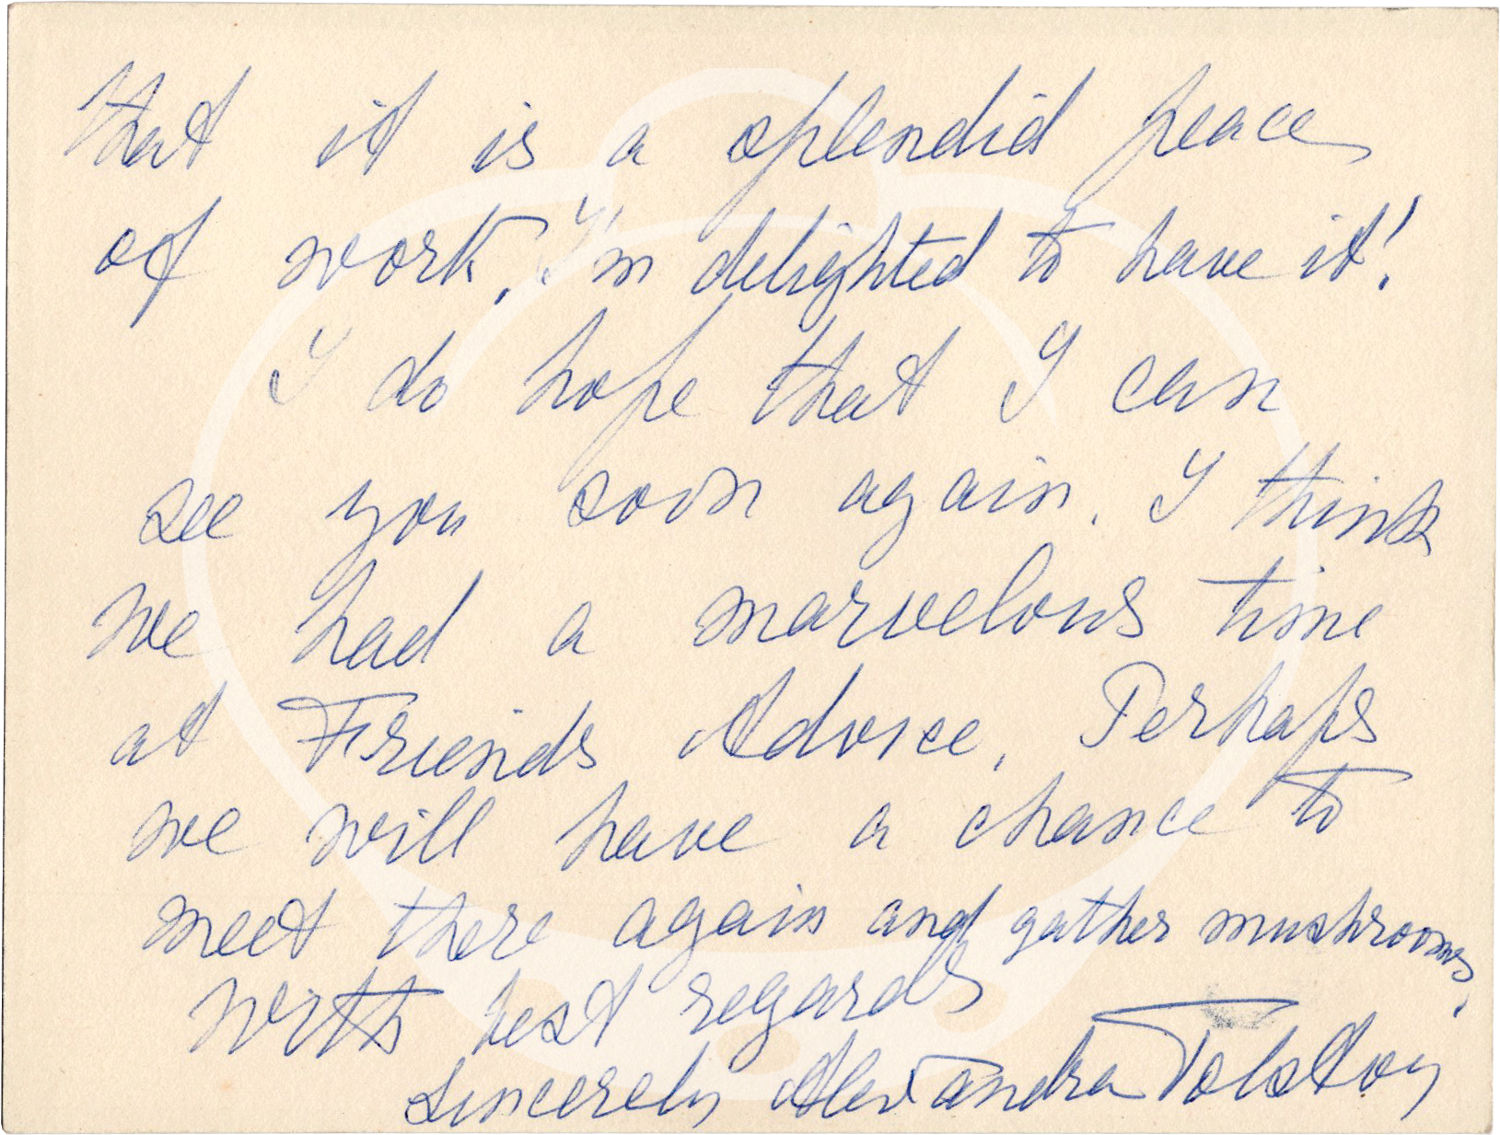 that it is a splendid peace
of work, I'm delighted to have it!
I do hope that I can
see you soon again. I think
we had a marvelous time
at Friends Advice. Perhaps
we will have a chance to
meet there again and gather mushrooms.
With best regards
Sincerely Alexandra Tolstoy